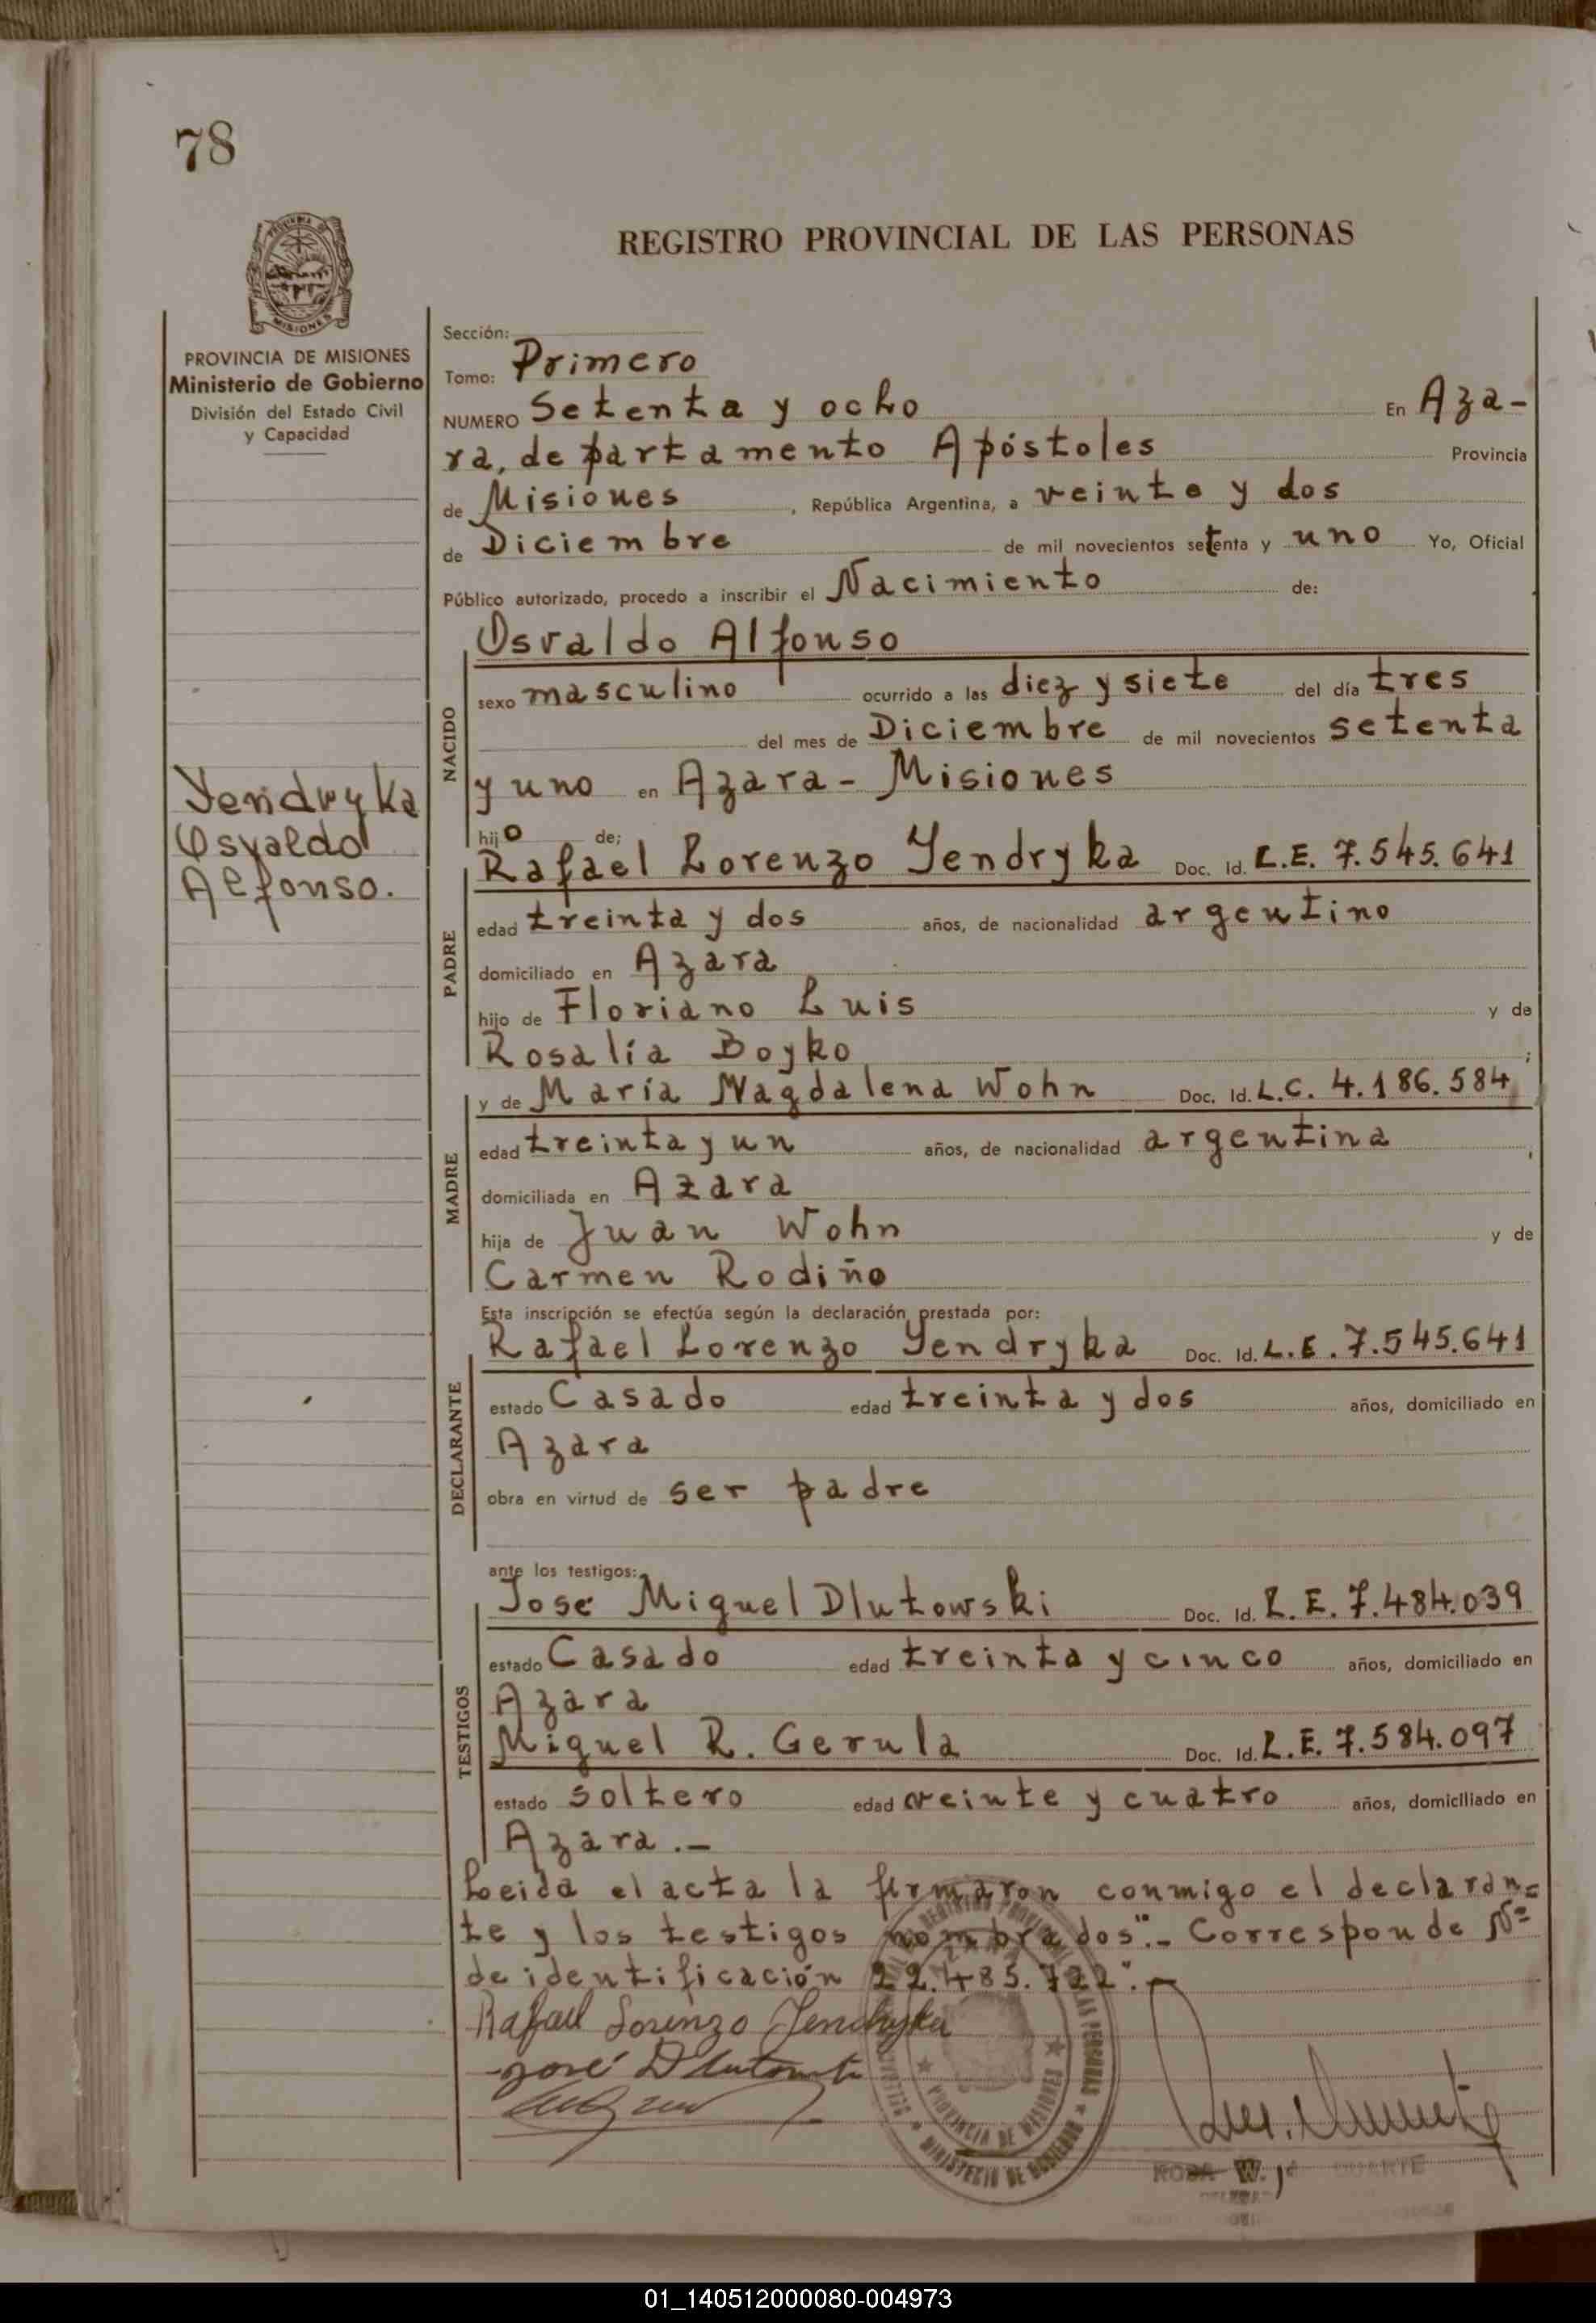 78
REGISTRO PROVINCIAL DE LAS PERSONAS
MISIONES
PROVINCIA DE MISIONES
Ministerio de Gobierno
División del Estado Civil
y Capacidad
Sección:
Tomo: Primero
NUMERO Setenta y ocho En Aza-
ra, departamento Apóstoles Provincia
de Misiones, República Argentina, a veinte y dos
de Diciembre de mil novecientos setenta y uno Yo, Oficial
Público autorizado, procedo a inscribir el Nacimiento de:
NACIDO
Osvaldo Alfonso
sexo masculino ocurrido a las diez y siete del día tres
del mes de Diciembre de mil novecientos setenta
y uno en Azara - Misiones
Yendryka
Osvaldo
Alfonso.
hijo de;
PADRE
Rafael Lorenzo Yendryka Doc. Id. L.E. 7.545.641
edad treinta y dos años, de nacionalidad argentino
domiciliado en Azara
hijo de Floriano Luis y de
Rosalía Boyko;
MADRE
y de María Magdalena Wohn Doc. Id. L.C. 4.186.584
edad treinta y un años, de nacionalidad argentina,
domiciliada en Azara
hija de Juan Wohn y de
Carmen Rodiño
Esta inscripción se efectúa según la declaración prestada por:
DECLARANTE
Rafael Lorenzo Yendryka Doc. Id. L.E. 7.545.641
estado Casado edad treinta y dos años, domiciliado en
Azara
obra en virtud de ser padre
ante los testigos:
TESTIGOS
José Miguel Dlutowski Doc. Id. L.E. 7.484.039
estado Casado edad treinta y cinco años, domiciliado en
Azara
Miguel R. Gerula Doc. Id. L.E. 7.584.097
estado soltero edad veinte y cuatro años, domiciliado en
Azara.-
Leida el acta la firmaron conmigo el declaran=
te y los testigos nombrados".- Corresponde Nº
de identificación 22.485.722".-
Rafael Lorenzo Yendryka
José Dlutowski
PROVINCIA DE MISIONES
MINISTERIO DE GOBIERNO
W. DUARTE
01_140512000080-004973